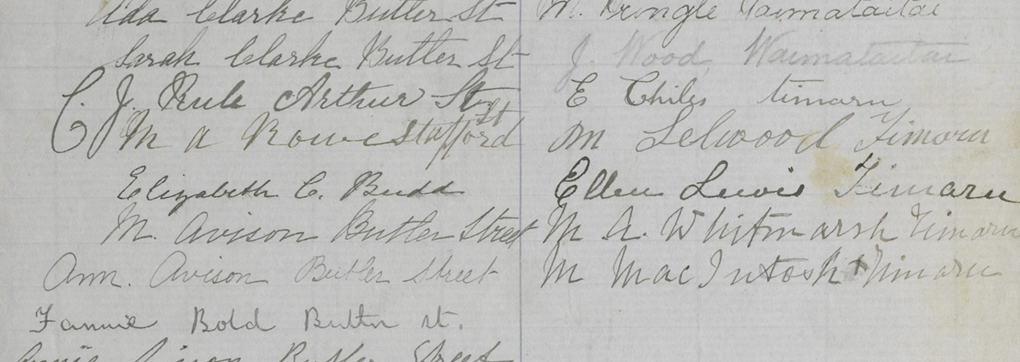 Ada Clarke Butler St
Sarah Clarke Butler St
C. J. Rule Arthur St
M A Rowe Stafford St
Elizabeth C. Budd
M. Avison Butler Street
Ann. Avison Butler Street
Fannie Bold Butler st.
Butler Street
M. Pringle Waimataitai
J. Wood, Waimataitai
E Chiles timaru
M Selwood Timaru
Ellen Lewis Timaru
M A. Whitmarsh Timaru
M MacIntosh Timaru